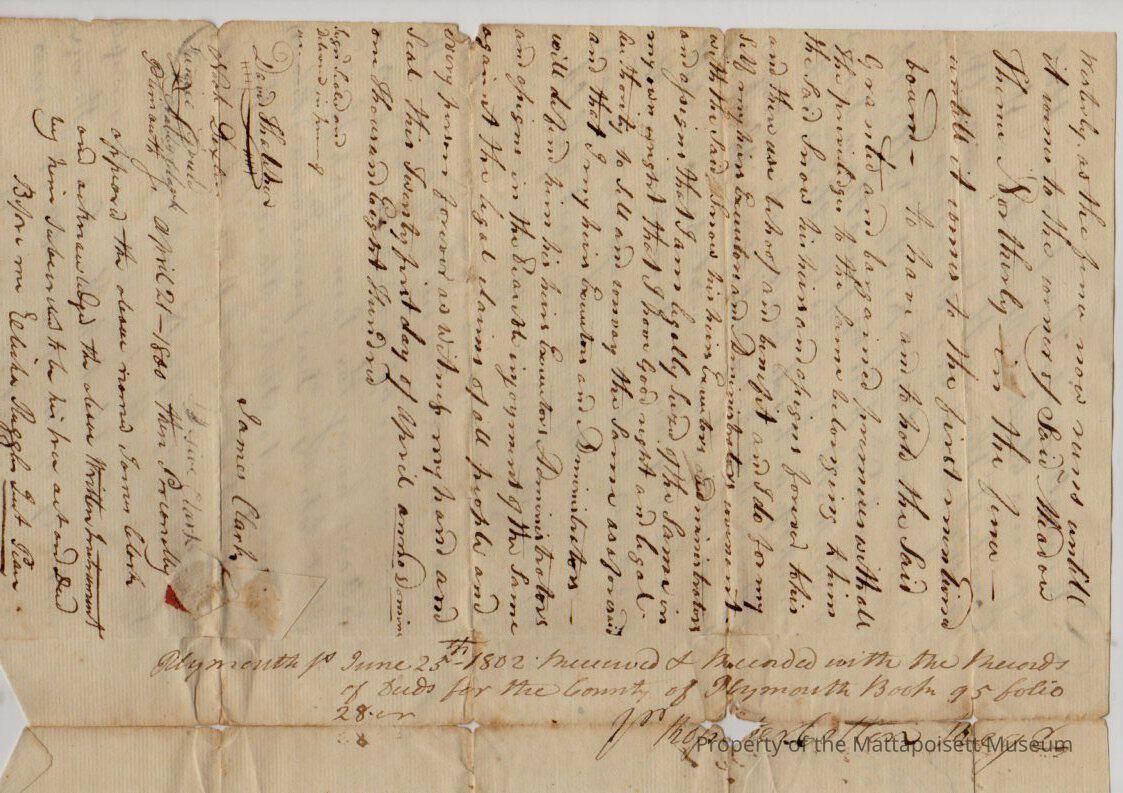 Westerly, as the fence now runs untill
it comes to the corner of Said Meadow
Thence Northerly in the fence —
untill it comes to the first mentiond
bound — To have and to hold the Said
Granted and bargaind premises with all
the priviledges to the Same belonging to him
the Said Snow his heirs and assigns forever to his
and their use behoof and benefit and I do for my
Self my heirs Executors and Administrators covenant
with the Said Snow his heirs Executors Administrators
and assigns that I am legally Seized of the Same in
my own right that I have Good right and legal
authority to Sell and convey the Same as aforesaid
and that I my heirs Executors and Administrators —
will defend him his heirs Executors Administrators
and assigns in the Peaceable injoyment of the Same
against the legal claims of all people and
every person forever as Witness my hand and
Seal this Twenty first day of April anno domini
one Thousand Eight Hundred
Signd Sealed and
Deliverd in presence
David
James Clark
Plymouth Ss April 21 — 1800 then Personally
appeared the above named James Clark
and acknowledged the above Written Instrument
by him Subscribd to be his free act and Deed
Before me Elisha Ruggles Just Peace
Plymouth Ss June 25th 1802. Received & Recorded with the Records
of Deeds for the County of Plymouth Book 95 folio
28
Regr
Property of the Mattapoisett Museum